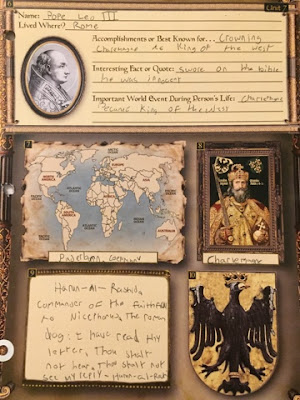 6
Unit 7
Name: Pope Leo III
Lived Where? Rome
Accomplishments or Best Known for... Crowning
Charlemagne as King of the West
Interesting Fact or Quote: Swore on the bible
he was innocent
Important World Event During Person's Life:
King of the West
7
NORTH AMERICA
EUROPE
ASIA
AFRICA
SOUTH AMERICA
ATLANTIC OCEAN
INDIAN OCEAN
Paderborn, Germany
8
Charlemagne
9
Harun-Al-Rashid,
Commander of the Faithful
to Nicephorus, the roman
dog: I have read thy
letter, Thou shalt
not hear, thou shalt not
see my reply - Harun-al-Rash
10